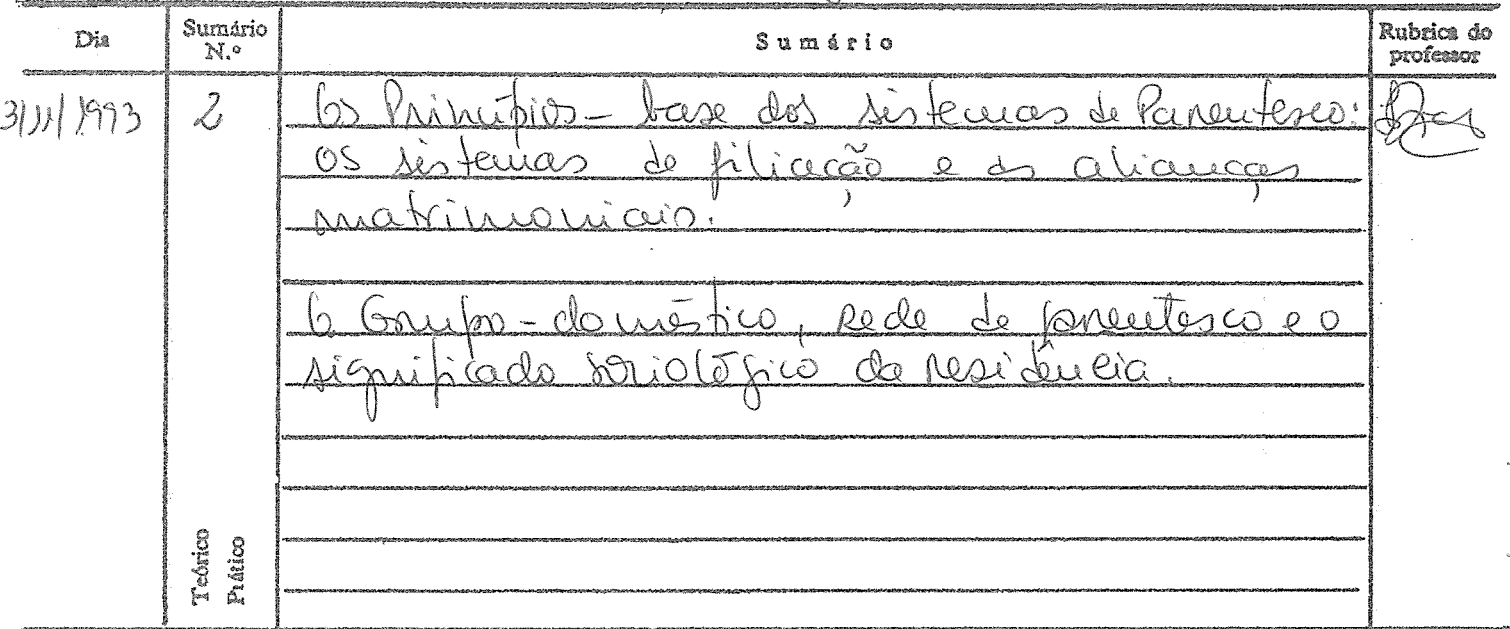 Dia Sumário N.º Sumário Rubrica do professor
3/11/1993 2 Os Princípios-base dos sistemas de Parentesco:
os sistemas de filiação e as alianças
matrimoniais.
O Grupo-doméstico, rede de parentesco e o
significado sociológico da residência.
Teórico
Prático